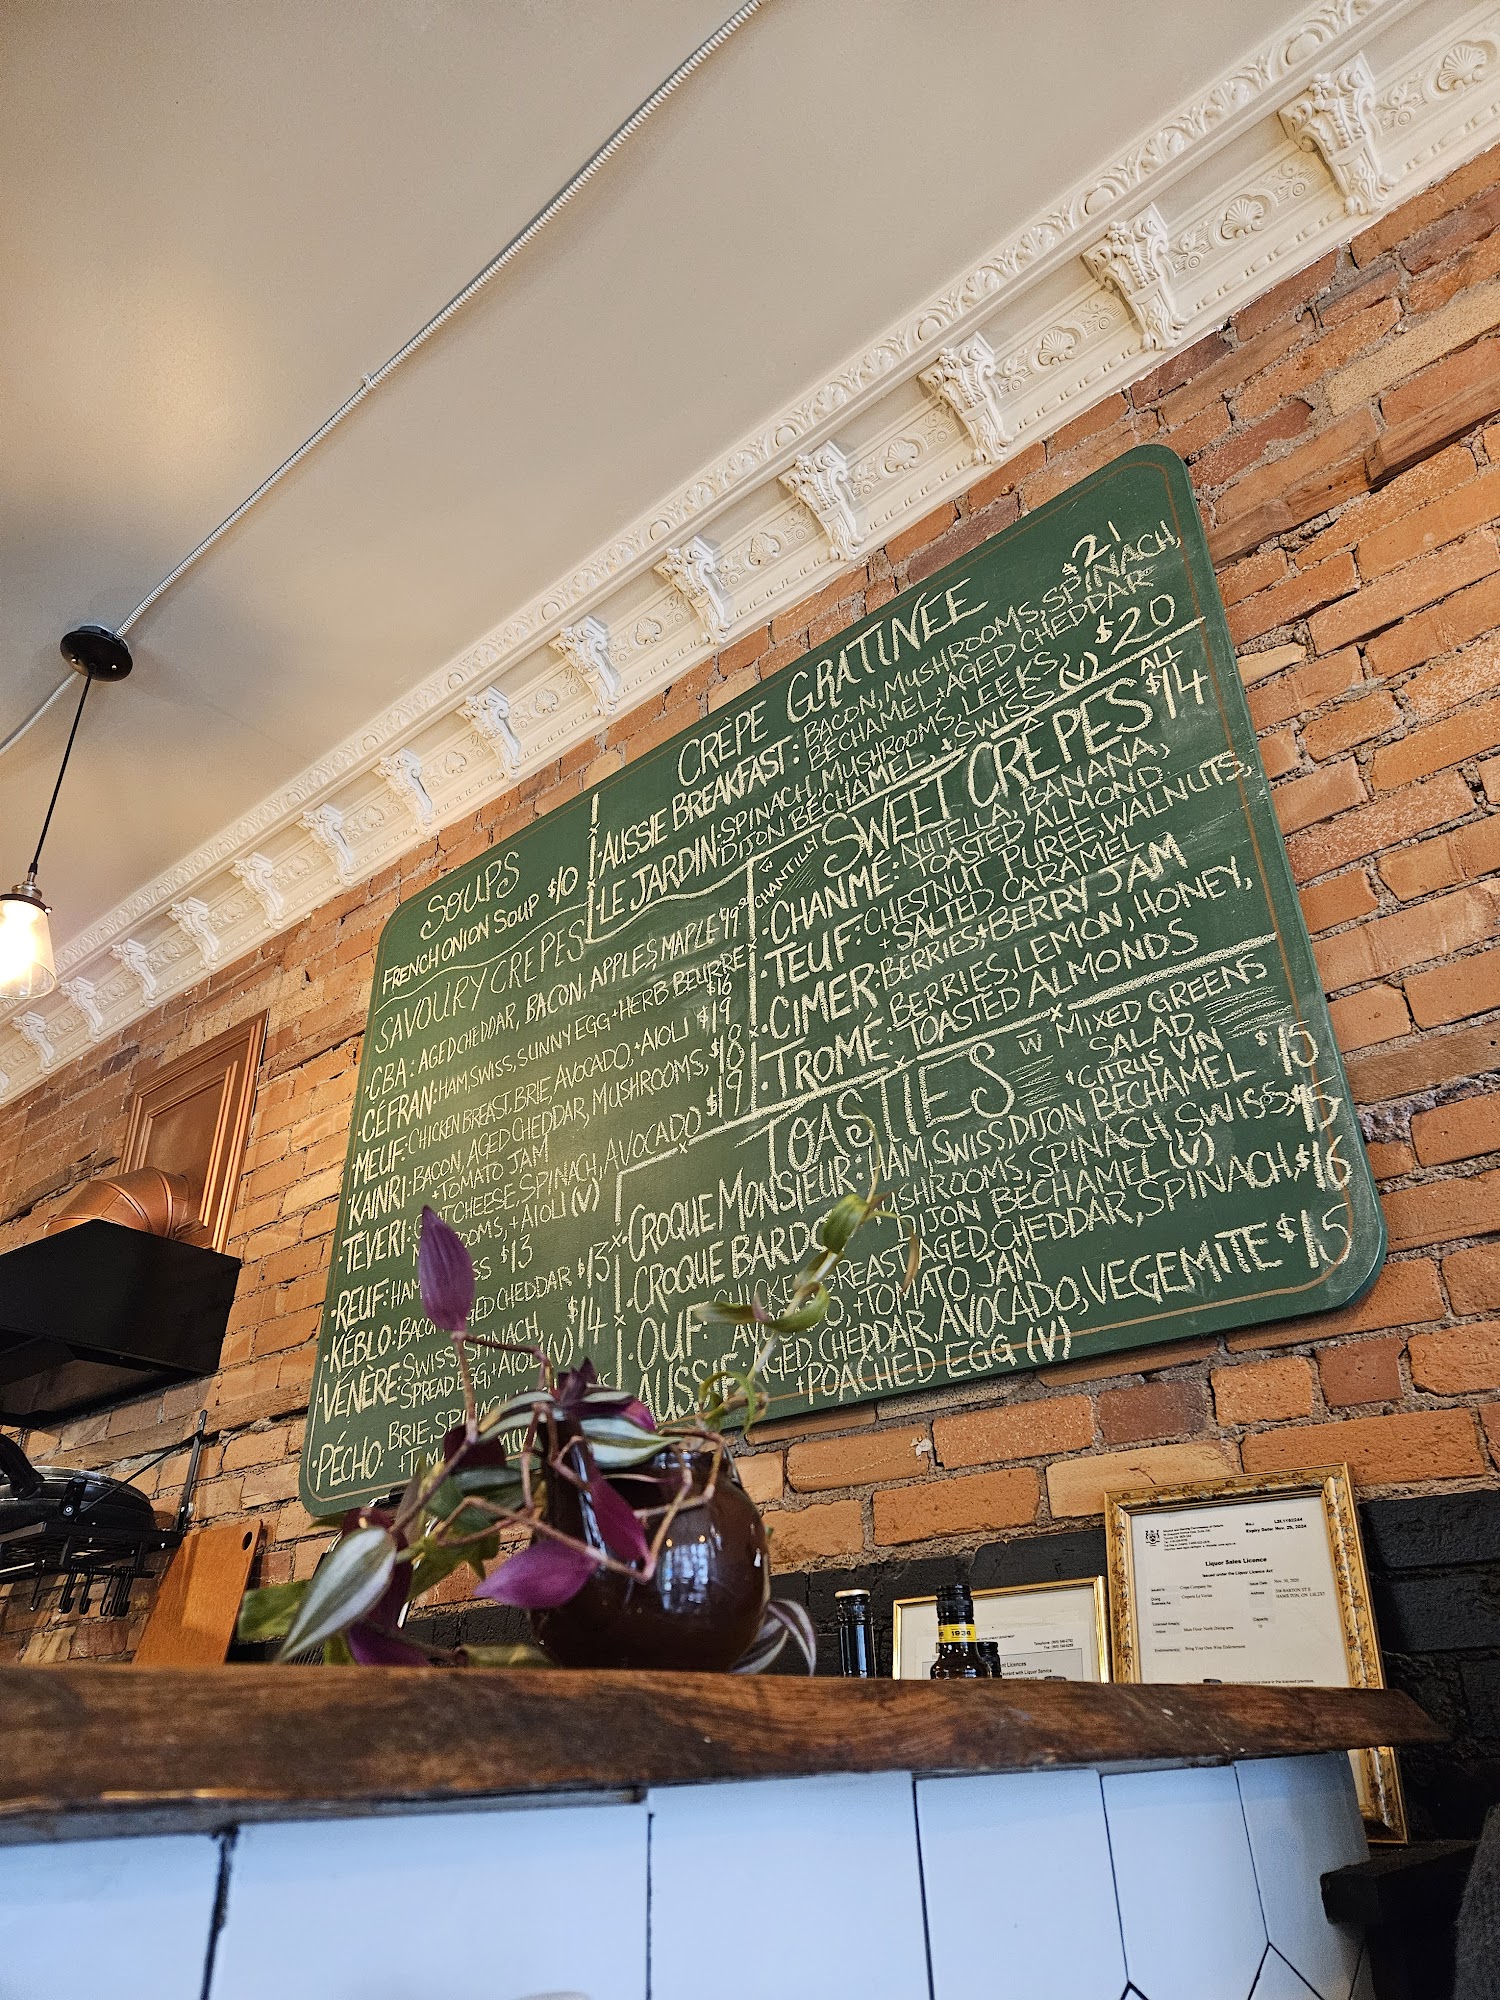 SOUPS
FRENCH ONION SOUP $10
SAVOURY CREPES
·CBA: AGED CHEDDAR, BACON, APPLES, MAPLE
·CÉFRAN: HAM, SWISS, SUNNY EGG + HERB BEURRE $16
·MEUF: CHICKEN BREAST, BRIE, AVOCADO, + AIOLI $19
·KAINRI: BACON, AGED CHEDDAR, MUSHROOMS, $18
+ TOMATO JAM
·TEVERI: CHEESE, SPINACH, AVOCADO $19
+ AIOLI (V)
·REUF: HAM $13
·KÉBLO: CHEDDAR $13
·VÉNÈRE: SWISS, SPINACH, $14
SPREAD EGG, + AIOLI (V)
·PÉCHO: BRIE,
CRÊPE GRATINEE
·AUSSIE BREAKFAST: BACON, MUSHROOMS, SPINACH, $21
BÉCHAMEL, + AGED CHEDDAR
·LE JARDIN: SPINACH, MUSHROOMS, LEEKS, $20
DIJON BÉCHAMEL, + SWISS (V)
W CHANTILLY
SWEET CRÊPES ALL $14
·CHANMÉ: NUTELLA, BANANA,
TOASTED ALMOND
·TEUF: CHESTNUT PUREE, WALNUTS,
+ SALTED CARAMEL
·CIMER: BERRIES + BERRY JAM
·TROMÉ: BERRIES, LEMON, HONEY,
TOASTED ALMONDS
TOASTIES W MIXED GREENS
SALAD
+ CITRUS VIN
·CROQUE MONSIEUR: HAM, SWISS, DIJON BÉCHAMEL $15
·CROQUE BARDO MUSHROOMS, SPINACH, SWISS, $15
DIJON BÉCHAMEL (V)
·OUF: CHICKEN BREAST, AGED CHEDDAR, SPINACH, $16
+ TOMATO JAM
AUSSIE: AGED CHEDDAR, AVOCADO, VEGEMITE $15
+ POACHED EGG (V)
1936
Liquor Sales Licence
Issued under the Liquor Licence Act
Expiry Date: Nov. 25, 2024
HAMILTON, ON